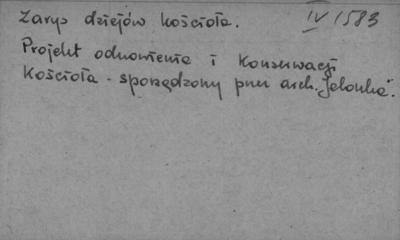 Zarys dziejów kościoła. IV 1583
Projekt odnowienia i Konserwacji
Kościoła - sporządzony przez arch. "Jelonka".